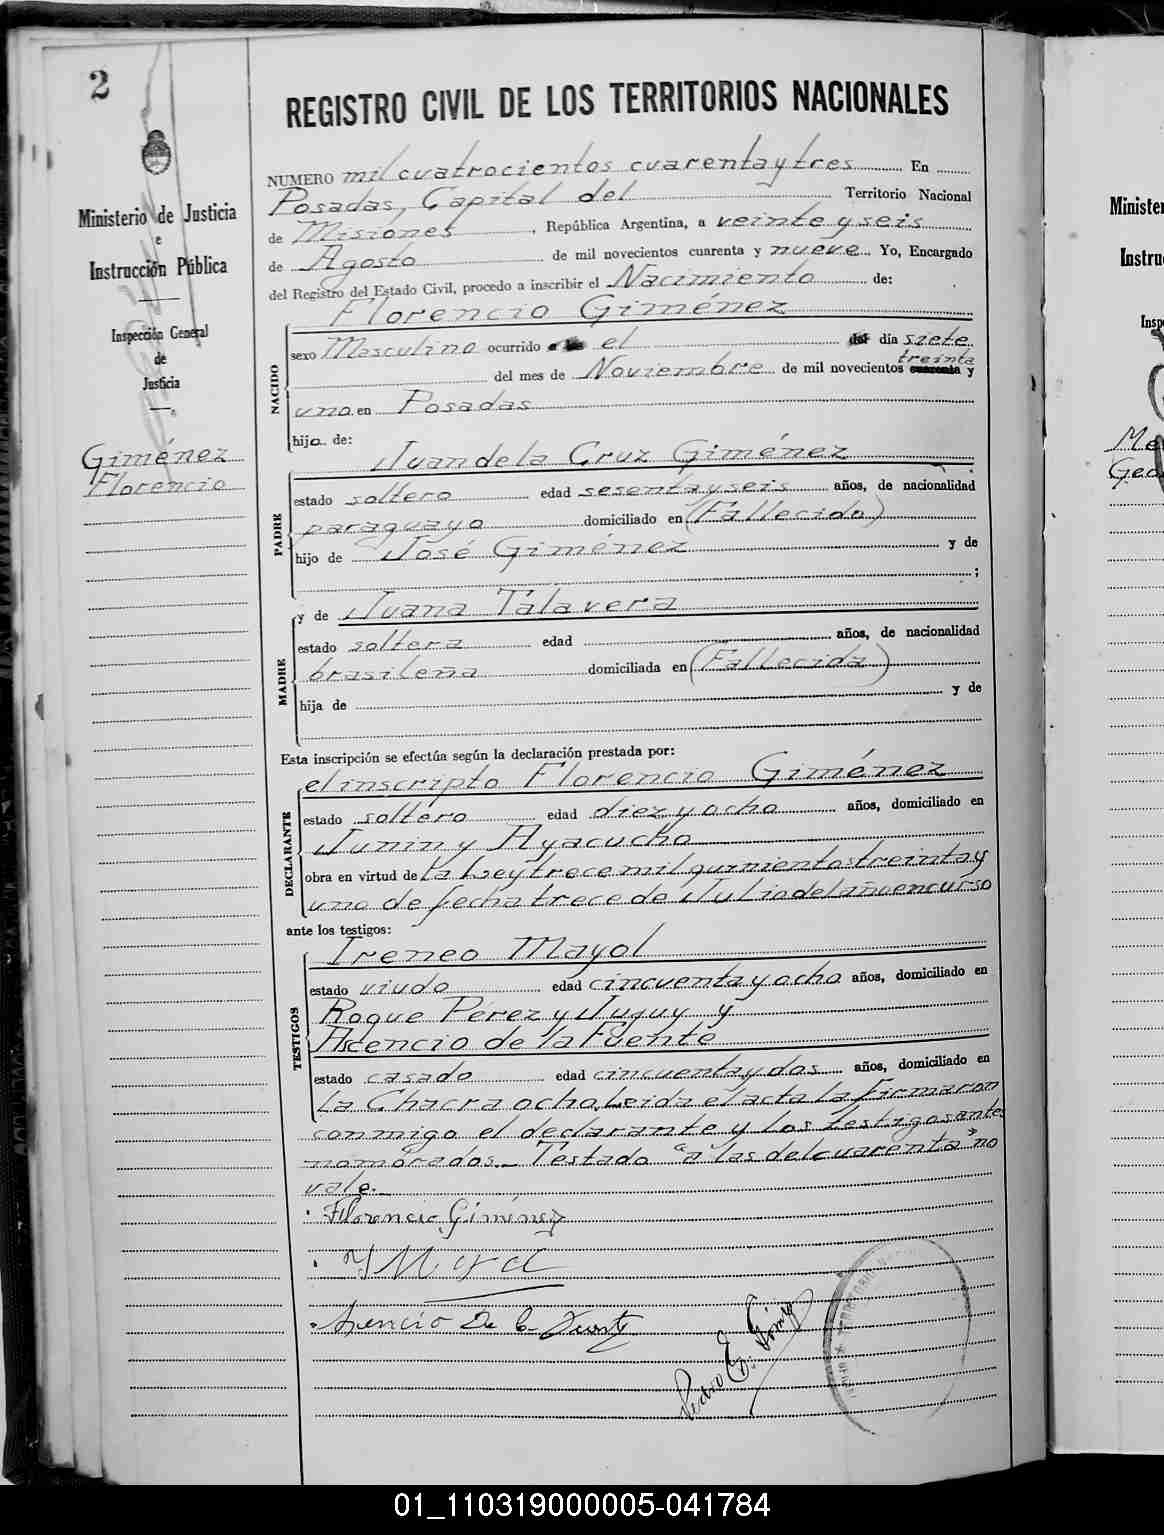 2
Ministerio de Justicia
e
Instrucción Pública
Inspección General
de
Justicia
Giménez
Florencio
REGISTRO CIVIL DE LOS TERRITORIOS NACIONALES
NUMERO mil cuatrocientos cuarenta y tres En
Posadas, Capital del Territorio Nacional
de Misiones, República Argentina, a veinte y seis
de Agosto de mil novecientos cuarenta y nueve. Yo, Encargado
del Registro del Estado Civil, procedo a inscribir el Nacimiento de:
Florencio Giménez
NACIDO
sexo Masculino ocurrido el día siete
treinta
del mes de Noviembre de mil novecientos cuarenta y
uno en Posadas
hijo de:
Juan de la Cruz Giménez
PADRE
estado soltero edad sesenta y seis años, de nacionalidad
paraguayo domiciliado en (Fallecido)
hijo de José Giménez y de
;
y de Juana Talavera
MADRE
estado soltera edad años, de nacionalidad
brasileña domiciliada en (Fallecida)
hija de y de
Esta inscripción se efectúa según la declaración prestada por:
el inscripto Florencio Giménez
DECLARANTE
estado soltero edad diez y ocho años, domiciliado en
Junin y Ayacucho
obra en virtud de la Ley trece mil quinientos treinta y
uno de fecha trece de Julio del año en curso
ante los testigos:
Ireneo Mayol
TESTIGOS
estado viudo edad cincuenta y ocho años, domiciliado en
Roque Pérez y Jujuy y
Ascencio de la Fuente
estado casado edad cincuenta y dos años, domiciliado en
la Chacra ocho. Leida el acta la firmaron
conmigo el declarante y los testigos ante
nombrados. Testado "a las del cuarenta" no
vale.
Florencio Giménez
Y Mayol
Asencio De la Fuente
Pedro E. Gómez
Minister
Instru
Insp
Me
Geo
01_110319000005-041784